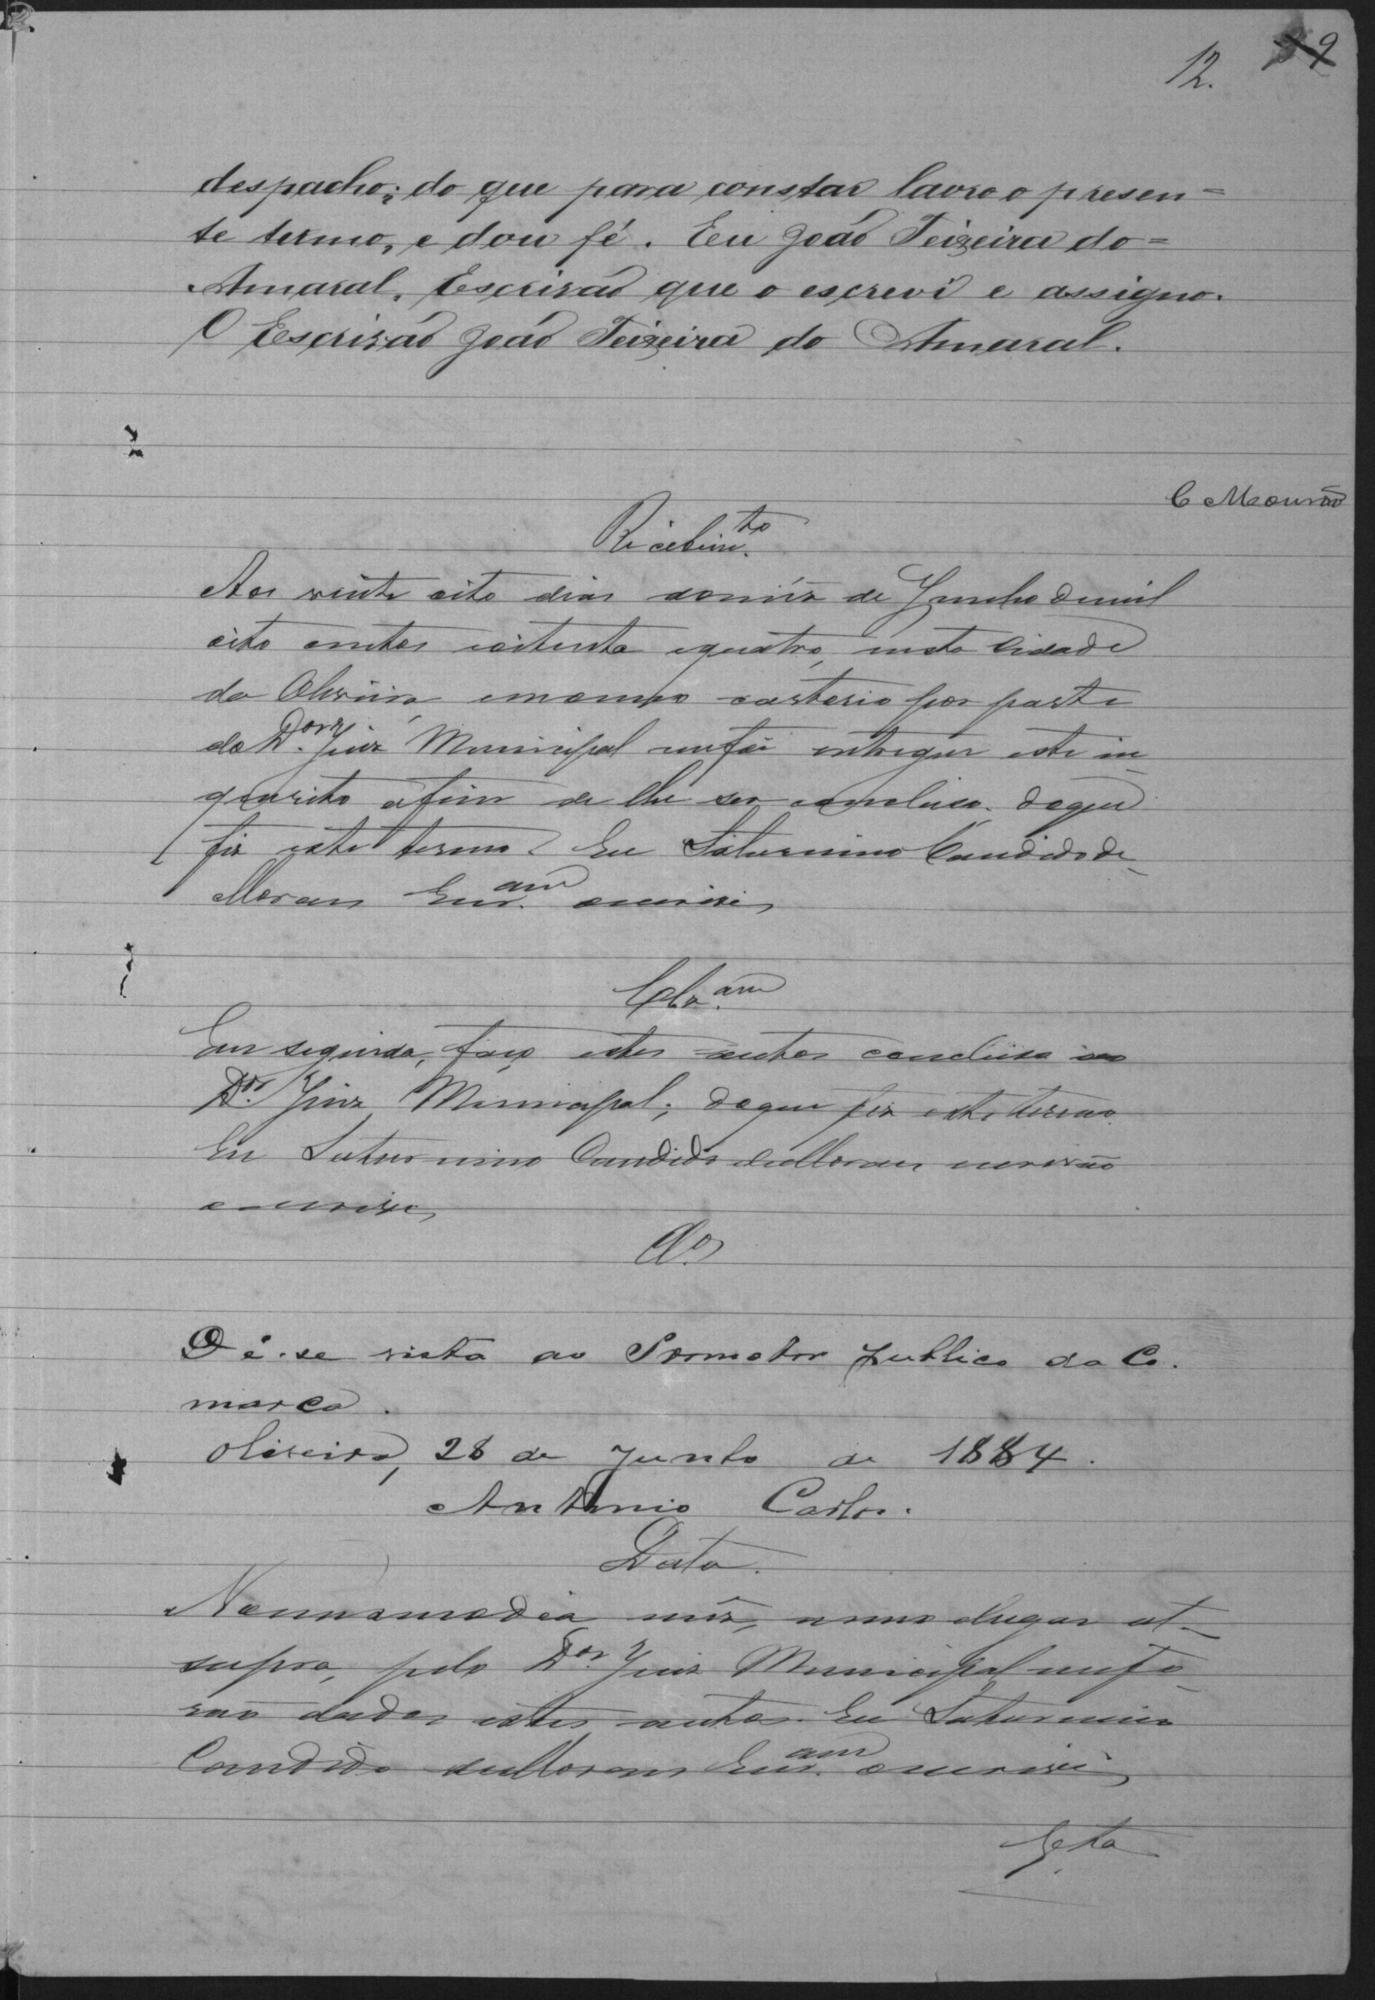 12. 39
despacho; do que para constar lavro o presen=
te termo, e dou fé. Eu João Teixeira do=
Amaral, Escrivão que o escrevi e assigno.
O Escrivão João Teixeira do Amaral.
C Mourão
Recebim.to
Aos vinte oito dias do mez de Junho de mil
oito centos e oitenta e quatro, nesta Cidade
da Oliveira em o meu cartorio por parte
do D.or Juiz Municipal me foi entregue este in
querito afim de lhe ser concluso. do que
fiz este termo. Eu Saturnino Candido de
Moraes Escr.am o escrevi
Clz.am
Em seguida, faço estes autos concluso ao
D.or Juiz Municipal; do que fiz este termo.
Eu Saturnino Candido de Moraes escrivão
o escrevi
Clo.
Dê-se vista ao Promotor Publico da Co.
marca.
Oliveira, 28 de Junho de 1884.
Antonio Carlos.
Data.
No mesmo dia mez, e anno e lugar ut
supra, pelo D.or Juiz Municipal me fo
rão dados estes autos. Eu Saturnino
Candido de Moraes Escr.am o escrevi